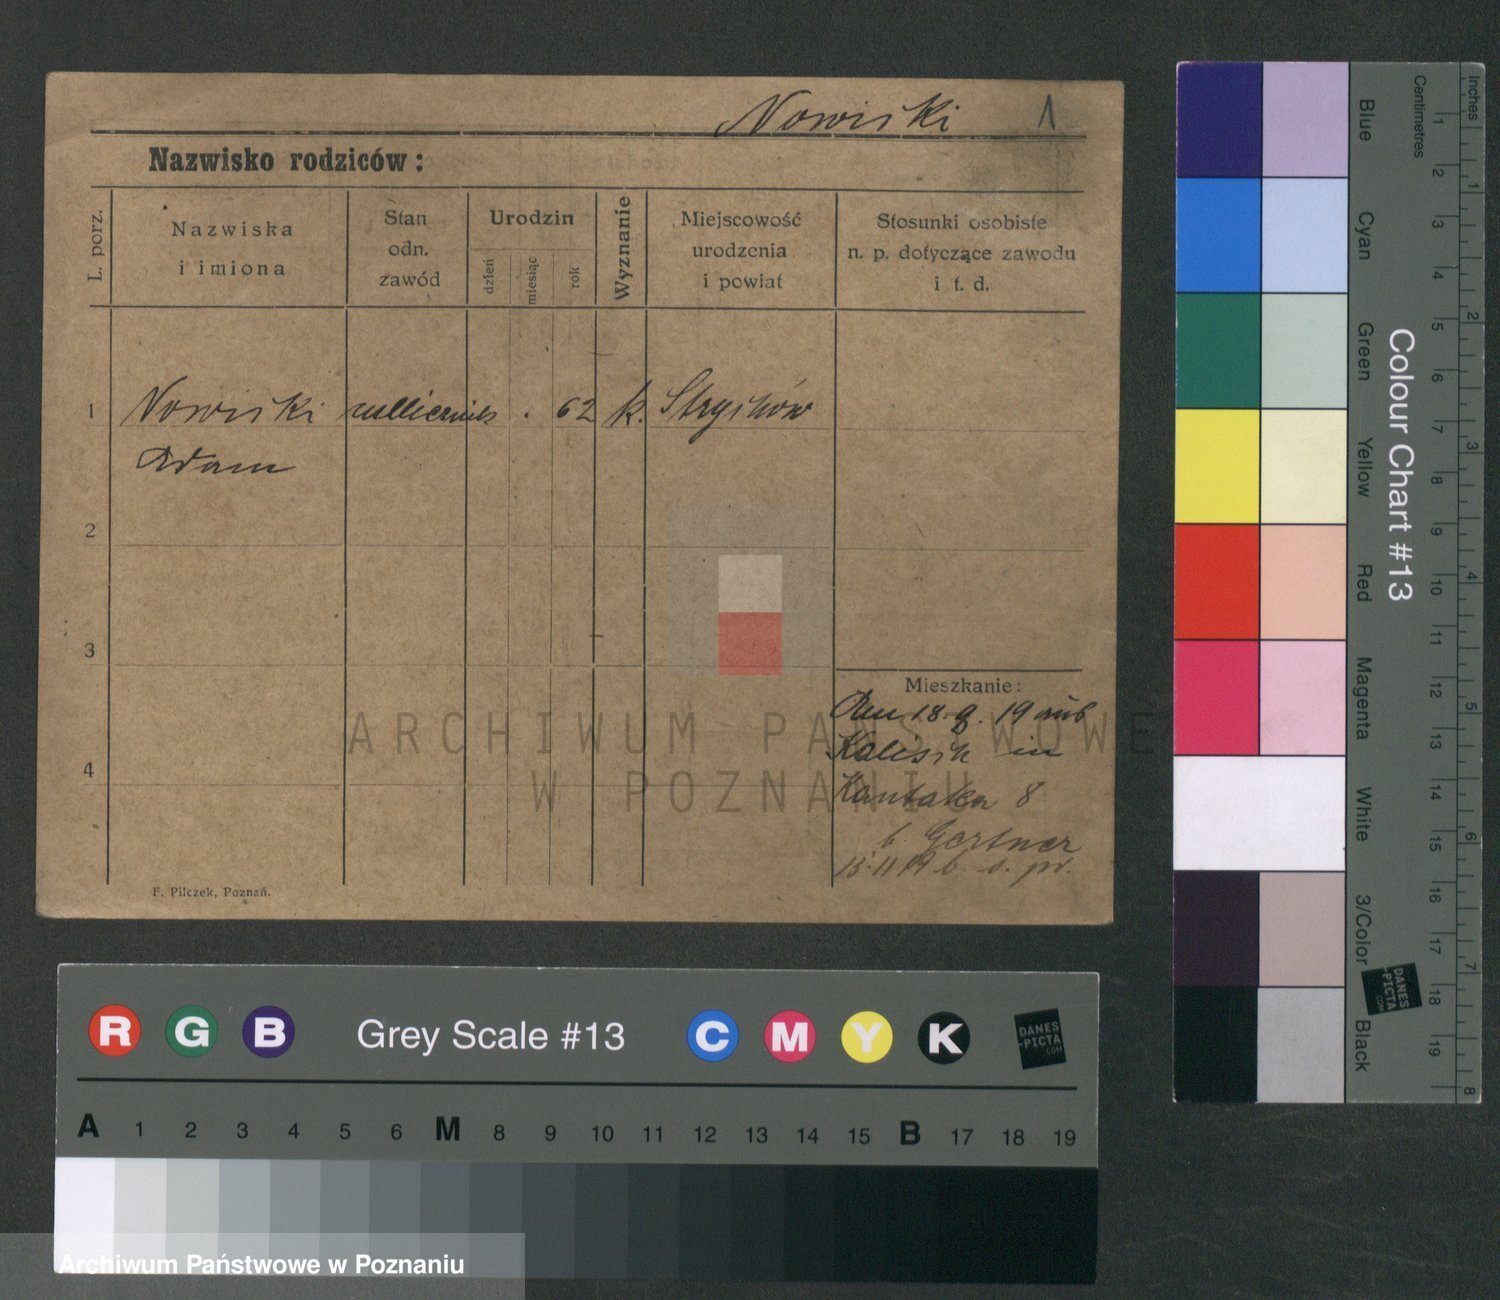 Nowiski 1
Nazwisko rodziców:
L. porz.
Nazwiska
i imiona
Stan
odn.
zawód
Urodzin
dzień
miesiąc
rok
Wyznanie
Miejscowość
urodzenia
i powiat
Stosunki osobiste
n. p. dotyczące zawodu
i t. d.
1 Nowiski . 62 k. Strychów
Adam
2
3
4
Mieszkanie:
Den 18. 9. 19 aus
Kalisch in
8
b. Gertner
15.11 19
F. Pilczek, Poznań.
ARCHIWUM PAŃSTWOWE
W POZNANIU
Blue
Cyan
Green
Yellow
Red
Magenta
White
3/Color
Black
Colour Chart #13
Centimetres
1 2 3 4 5 6 7 8 9 10 11 12 13 14 15 16 17 18 19
Inches
1 2 3 4 5 6 7 8
DANES
-PICTA
.COM
R G B Grey Scale #13 C M Y K
DANES
-PICTA
.COM
A 1 2 3 4 5 6 M 8 9 10 11 12 13 14 15 B 17 18 19
Archiwum Państwowe w Poznaniu